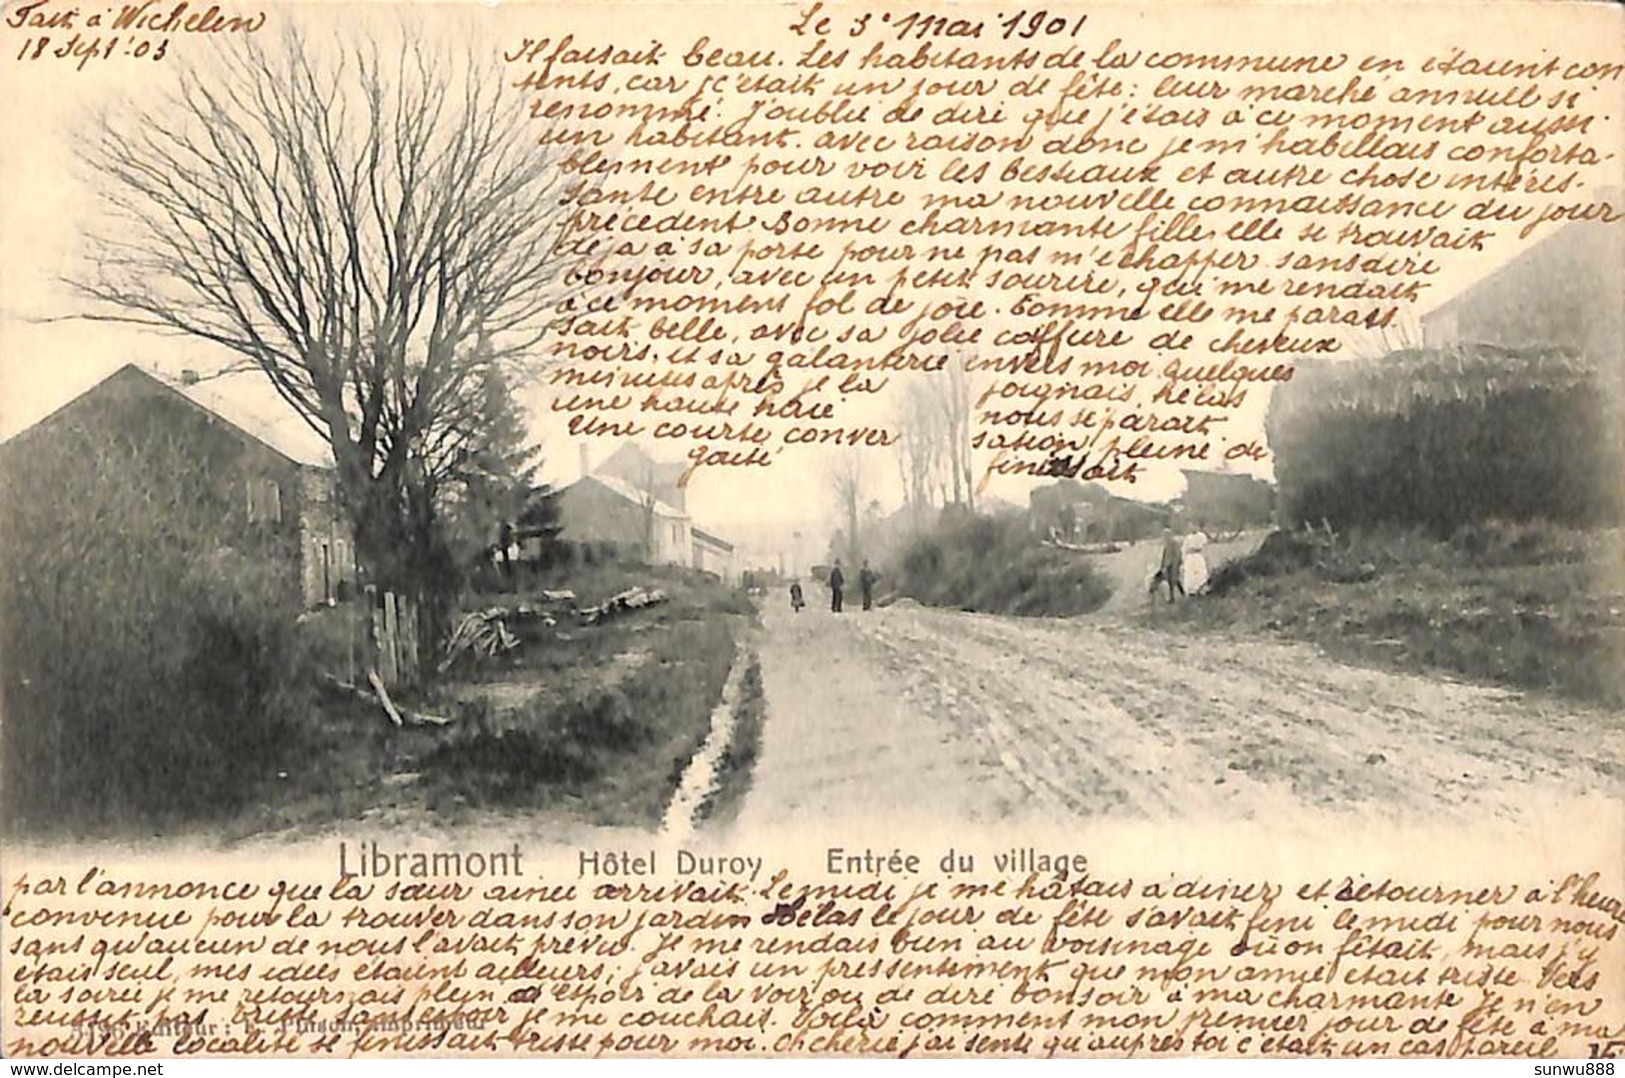 Fait à Wichelen
18 Sept. 03
Le 3e Mai 1901
Il faisait beau. Les habitants de la commune en étaient con
tents, car c'était un jour de fête: leur marché annuell si
renommé. J'oublie de dire que j'étais à ce moment aussi
un habitant. avec raison donc je m'habillais conforta-
blement pour voir les bestiaux et autre chose intéres-
sante entre autre ma nouvelle connaissance du jour
précedent Bonne charmante fille, elle se trouvait
déja à sa porte pour ne pas m'echapper sans dire
bonjour, avec un petit sourire, qui me rendait
à ce moment fol de joie. Comme elle me parais
sait belle, avec sa jolie coiffure de cheveux
noirs, et sa galanterie envers moi quelques
minutes après je la joignais, hélas
une haute haie nous séparait
Une courte conver sation pleine de
gaité finissait
Libramont Hôtel Duroy Entrée du village
par l'annonce que la sœur ainée arrivait. Le midi je me hâtais à diner et retourner à l'heure
convenue pour la trouver dans son jardin Hélas le jour de fête s'avait fini le midi pour nous
sans qu'aucun de nous l'avait prévu. Je me rendais bien au voisinage où on fêtait, mais j'y
étais seul, mes idées étaient ailleurs; j'avais un pressentiment que mon amie était triste. Vers
la soirée je me retournais plein d'espoir de la voir ou de dire bonsoir à ma charmante Je n'en
réussit pas. triste sans espoir je me couchais. Voilà comment mon premier jour de fête à ma
Editeur: E. Pinson, Imprimeur
nouvelle localité se finissait triste pour moi. Oh chérie j'ai senti qu'auprès toi c'était un cas pareil
sunwu888